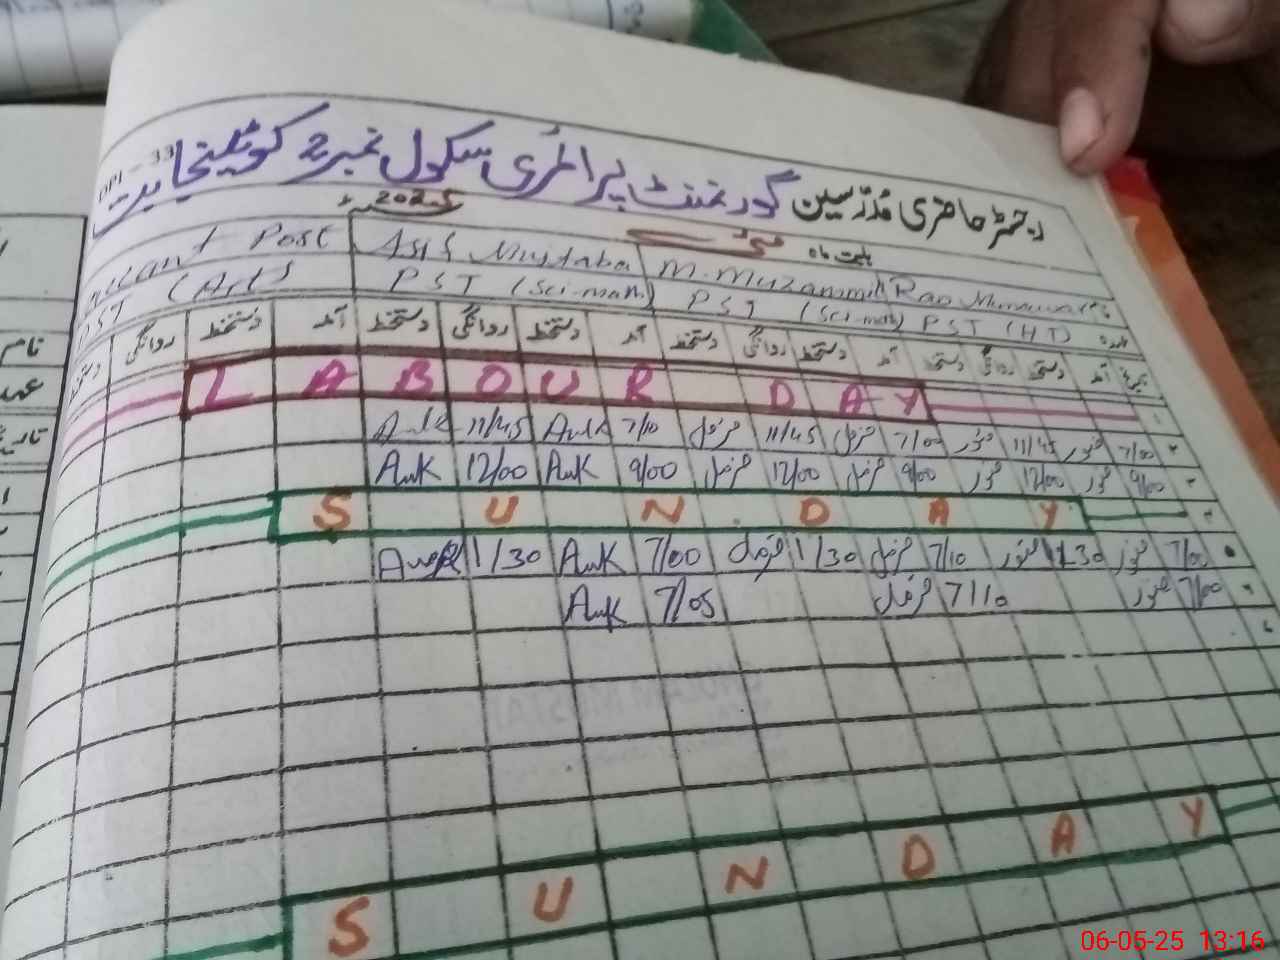 DPI - 33
رجسٹر حاضری مدرسین گورنمنٹ پرائمری سکول نمبر 2 کوٹلہ
بابت ماہ مئی 2025ء
Rao Munawar M. Muzammil Asif Mustaba Vacant Post
عہدہ PST (HT) PST (Sci-math) PST (Sci-math) PST (Arts)
آمد دستخط روانگی دستخط آمد دستخط روانگی دستخط آمد دستخط روانگی دستخط آمد دستخط روانگی دستخط
LABOUR DAY
۲ 7/00 منور 11/45 منور 7/00 مزمل 11/45 مزمل 7/10 Amk 11/45 Amk
۳ 9/00 منور 12/00 منور 9/00 مزمل 12/00 مزمل 9/00 Amk 12/00 Amk
۴ SUNDAY
۵ 7/00 منور 1/30 منور 7/10 مزمل 1/30 مزمل 7/00 Amk 1/30 Amk
۶ 7/00 منور 7/10 مزمل 7/05 Amk
۷
SUNDAY
نام
عہد
تاریخ
06-05-25 13:16